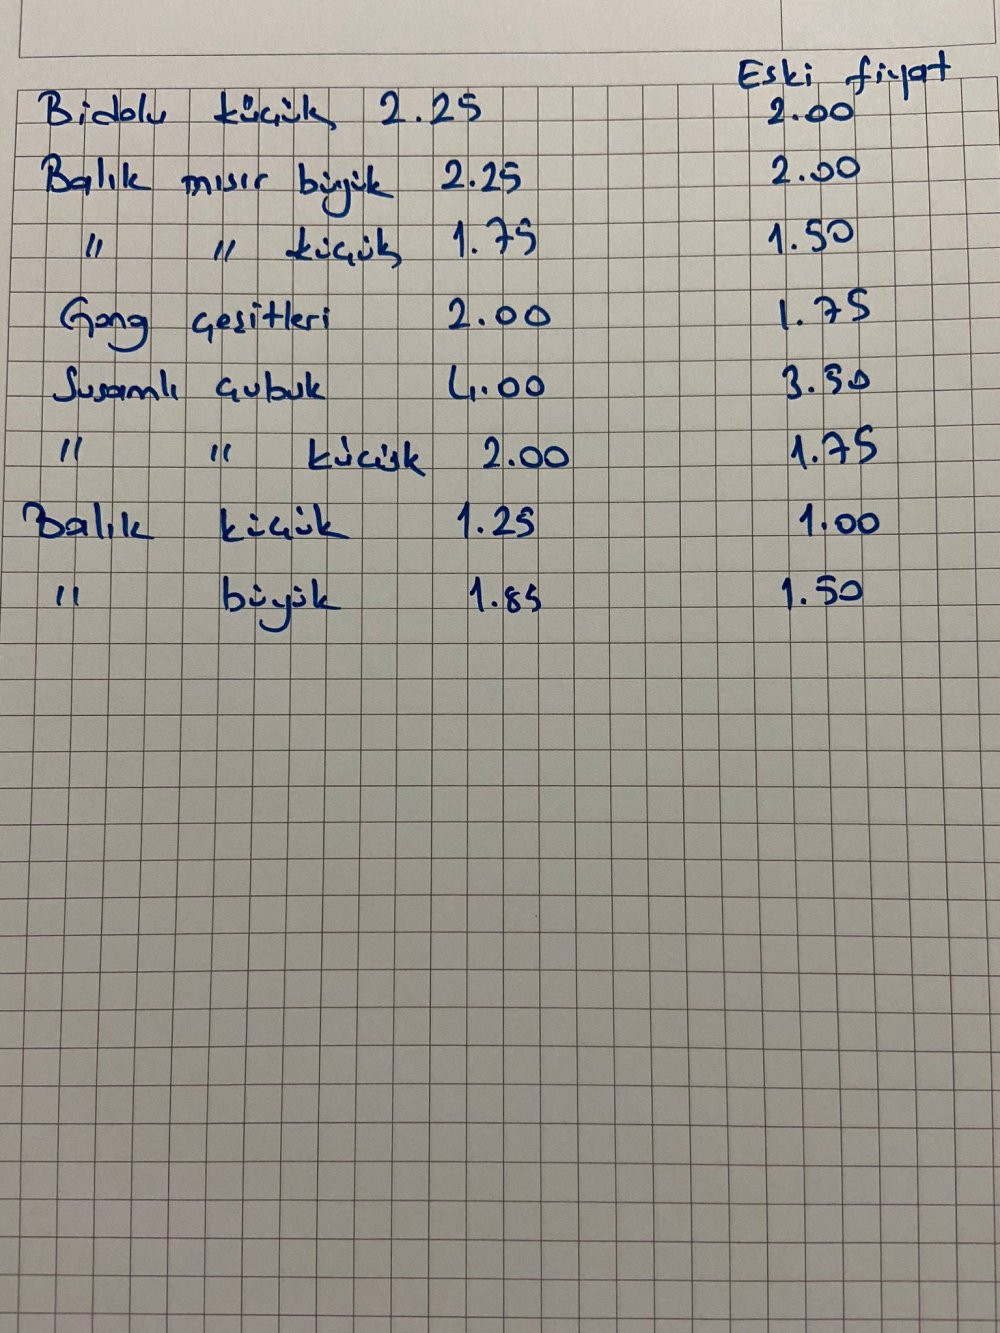 Eski fiyat
Bidolu küçük 2.25 2.00
Balık mısır büyük 2.25 2.00
" " küçük 1.75 1.50
Gong çeşitleri 2.00 1.75
Susamlı çubuk 4.00 3.50
" " küçük 2.00 1.75
Balık küçük 1.25 1.00
" büyük 1.85 1.50